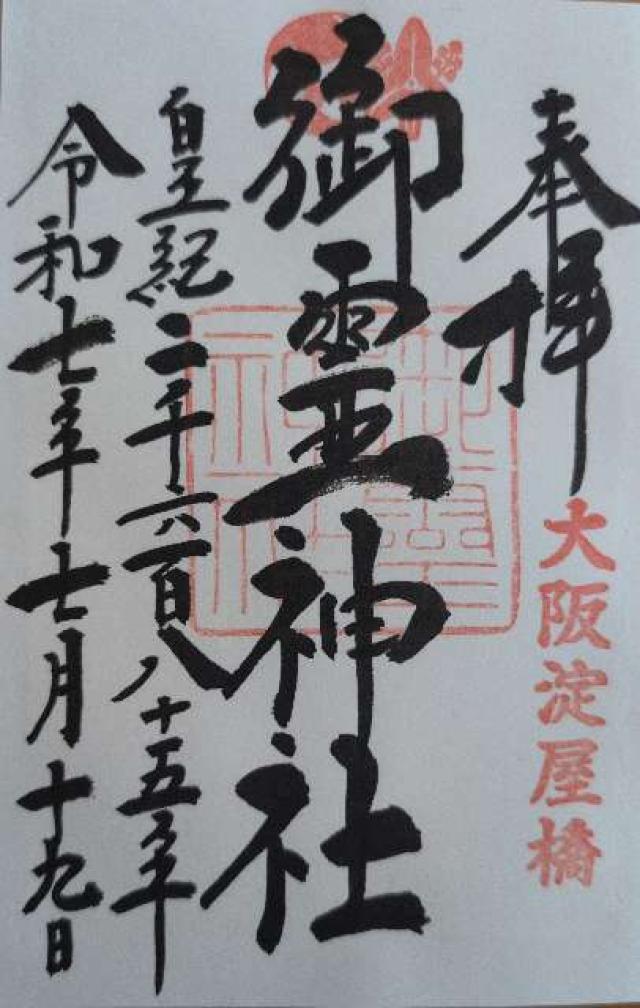 奉拝
大阪淀屋橋
御霊神社
皇紀二千六百八十五年
令和七年七月十九日